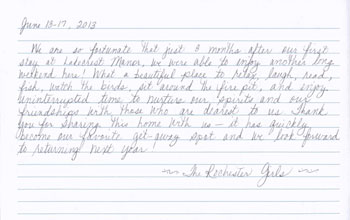 June 13-17, 2013
We are so fortunate that just 9 months after our first
stay at Lakecrest Manor, we were able to enjoy another long
weekend here! What a beautiful place to relax, laugh, read,
fish, watch the birds, sit around the fire pit, and enjoy
uninterrupted time to nurture our spirits and our
friendships with those who are dearest to us. Thank
you for sharing this home with us - it has quickly
become our favorite get-away spot and we look forward
to returning next year!
~ The Rochester Girls ~